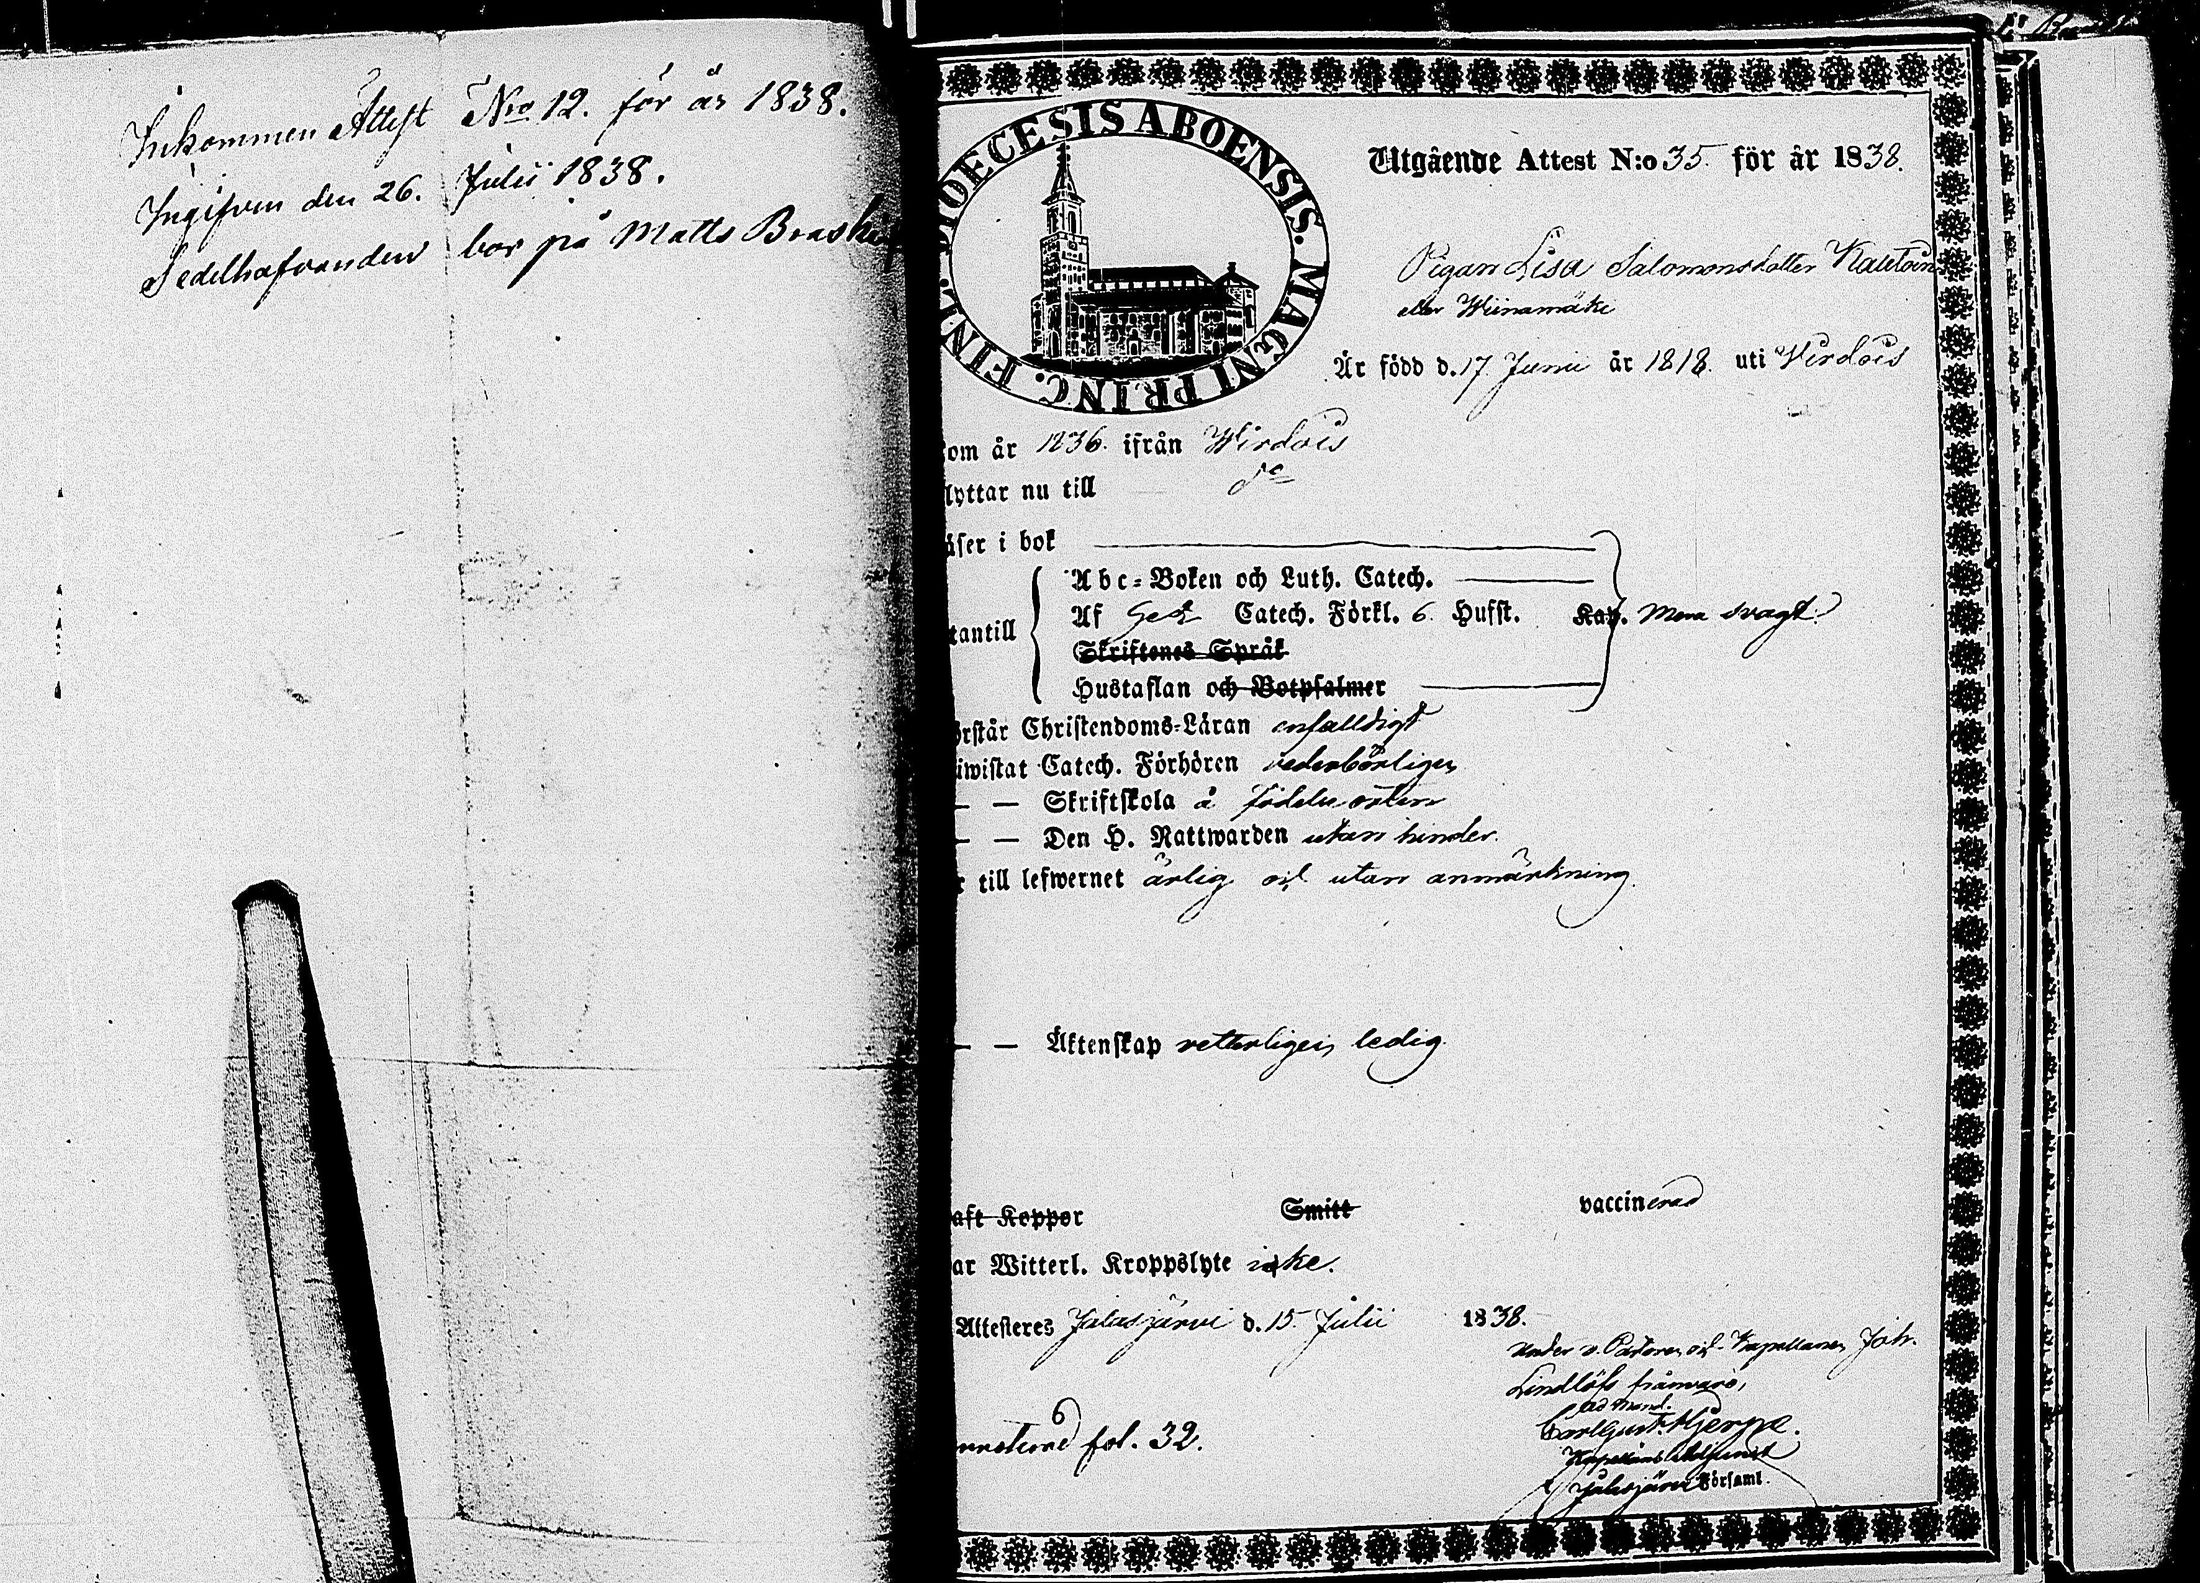 Inkommen Attest N:ro 12. för år 1838.
Ingifven den 26. Julii 1838.
Sedelhafvanden bor på Matts Braski
DIOECESIS ABOENSIS. MAGNI PRINC. FINL.
Utgående Attest N:o 35. för år 1838.
Pigan Lisa Salomonsdotter
eller Wiinamäki
Är född d. 17 Junii år 1818. uti Virdois
om år 1836. ifrån Wirdois
lyttar nu till do
äser i bok
Abc-Boken och Luth. Catech.
tantill Af Catech. Förkl. 6. Hufst. Kap. Mera svagt.
Skriftenes Språk
Hustaflan och Botpsalmer
örstår Christendoms-Läran enfalldigt
iwistat Catech. Förhören vederbörligen
— — Skriftskola å födelseorten
— — Den H. Nattwarden utan hinder.
r till lefwernet ärlig och utan anmärkning.
— — Äktenskap vetterligen ledig.
aft Koppor Smitt vaccinerad
ar Witterl. Kroppslyte icke.
Attesteres Jalasjärvi d. 15. Julii 1838.
Under v. Pastoren och Kapellanen Joh.
Lindlöfs frånvaro,
ad mand.
Carl Gust. Hjerppe.
Kapellans Adjunct
i Jalasjärvi Församl.
fol. 32.